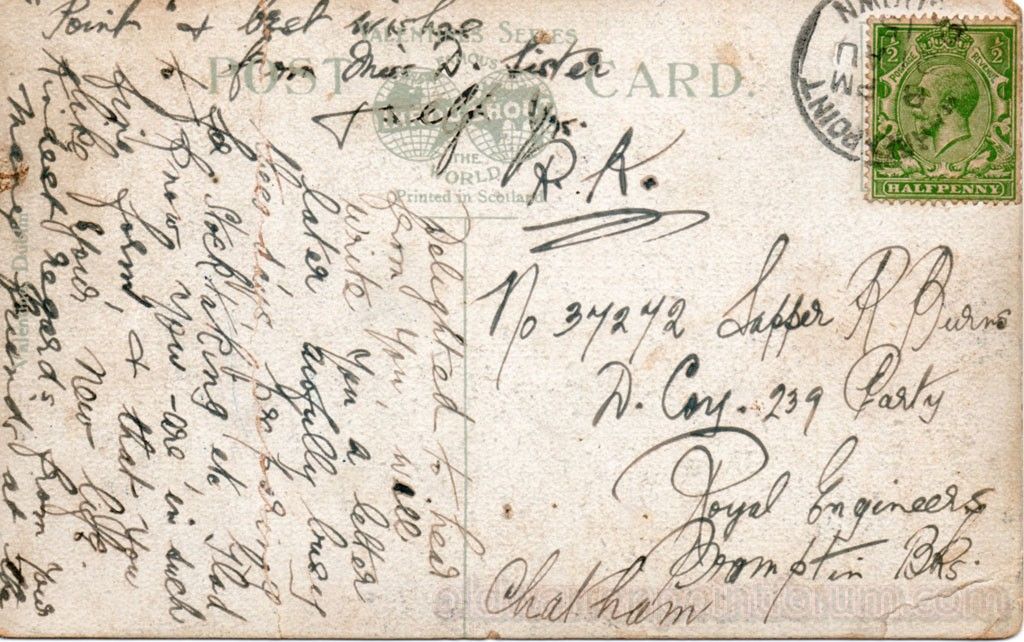 Point" & best wishes
from Miss D. Lister
& self
VALENTINES SERIES
FAMOUS
POST CARD.
THROUGHOUT
THE
WORLD
Printed in Scotland
HALFPENNY
POSTAGE REVENUE
1/2 1/2
POINT
R.A.
No 37272 Sapper R Burns
D. Coy. 239 Party
Royal Engineers
Brompton Bks.
Chatham
Delighted to hear
from you, will
write you a letter
later awfully busy
these days, preparing
to Stocktaking etc Glad
to know you are in such
fine form, & that you
like your new life
Kindest regards from your
many friends at the
oldbarnpointforum.com